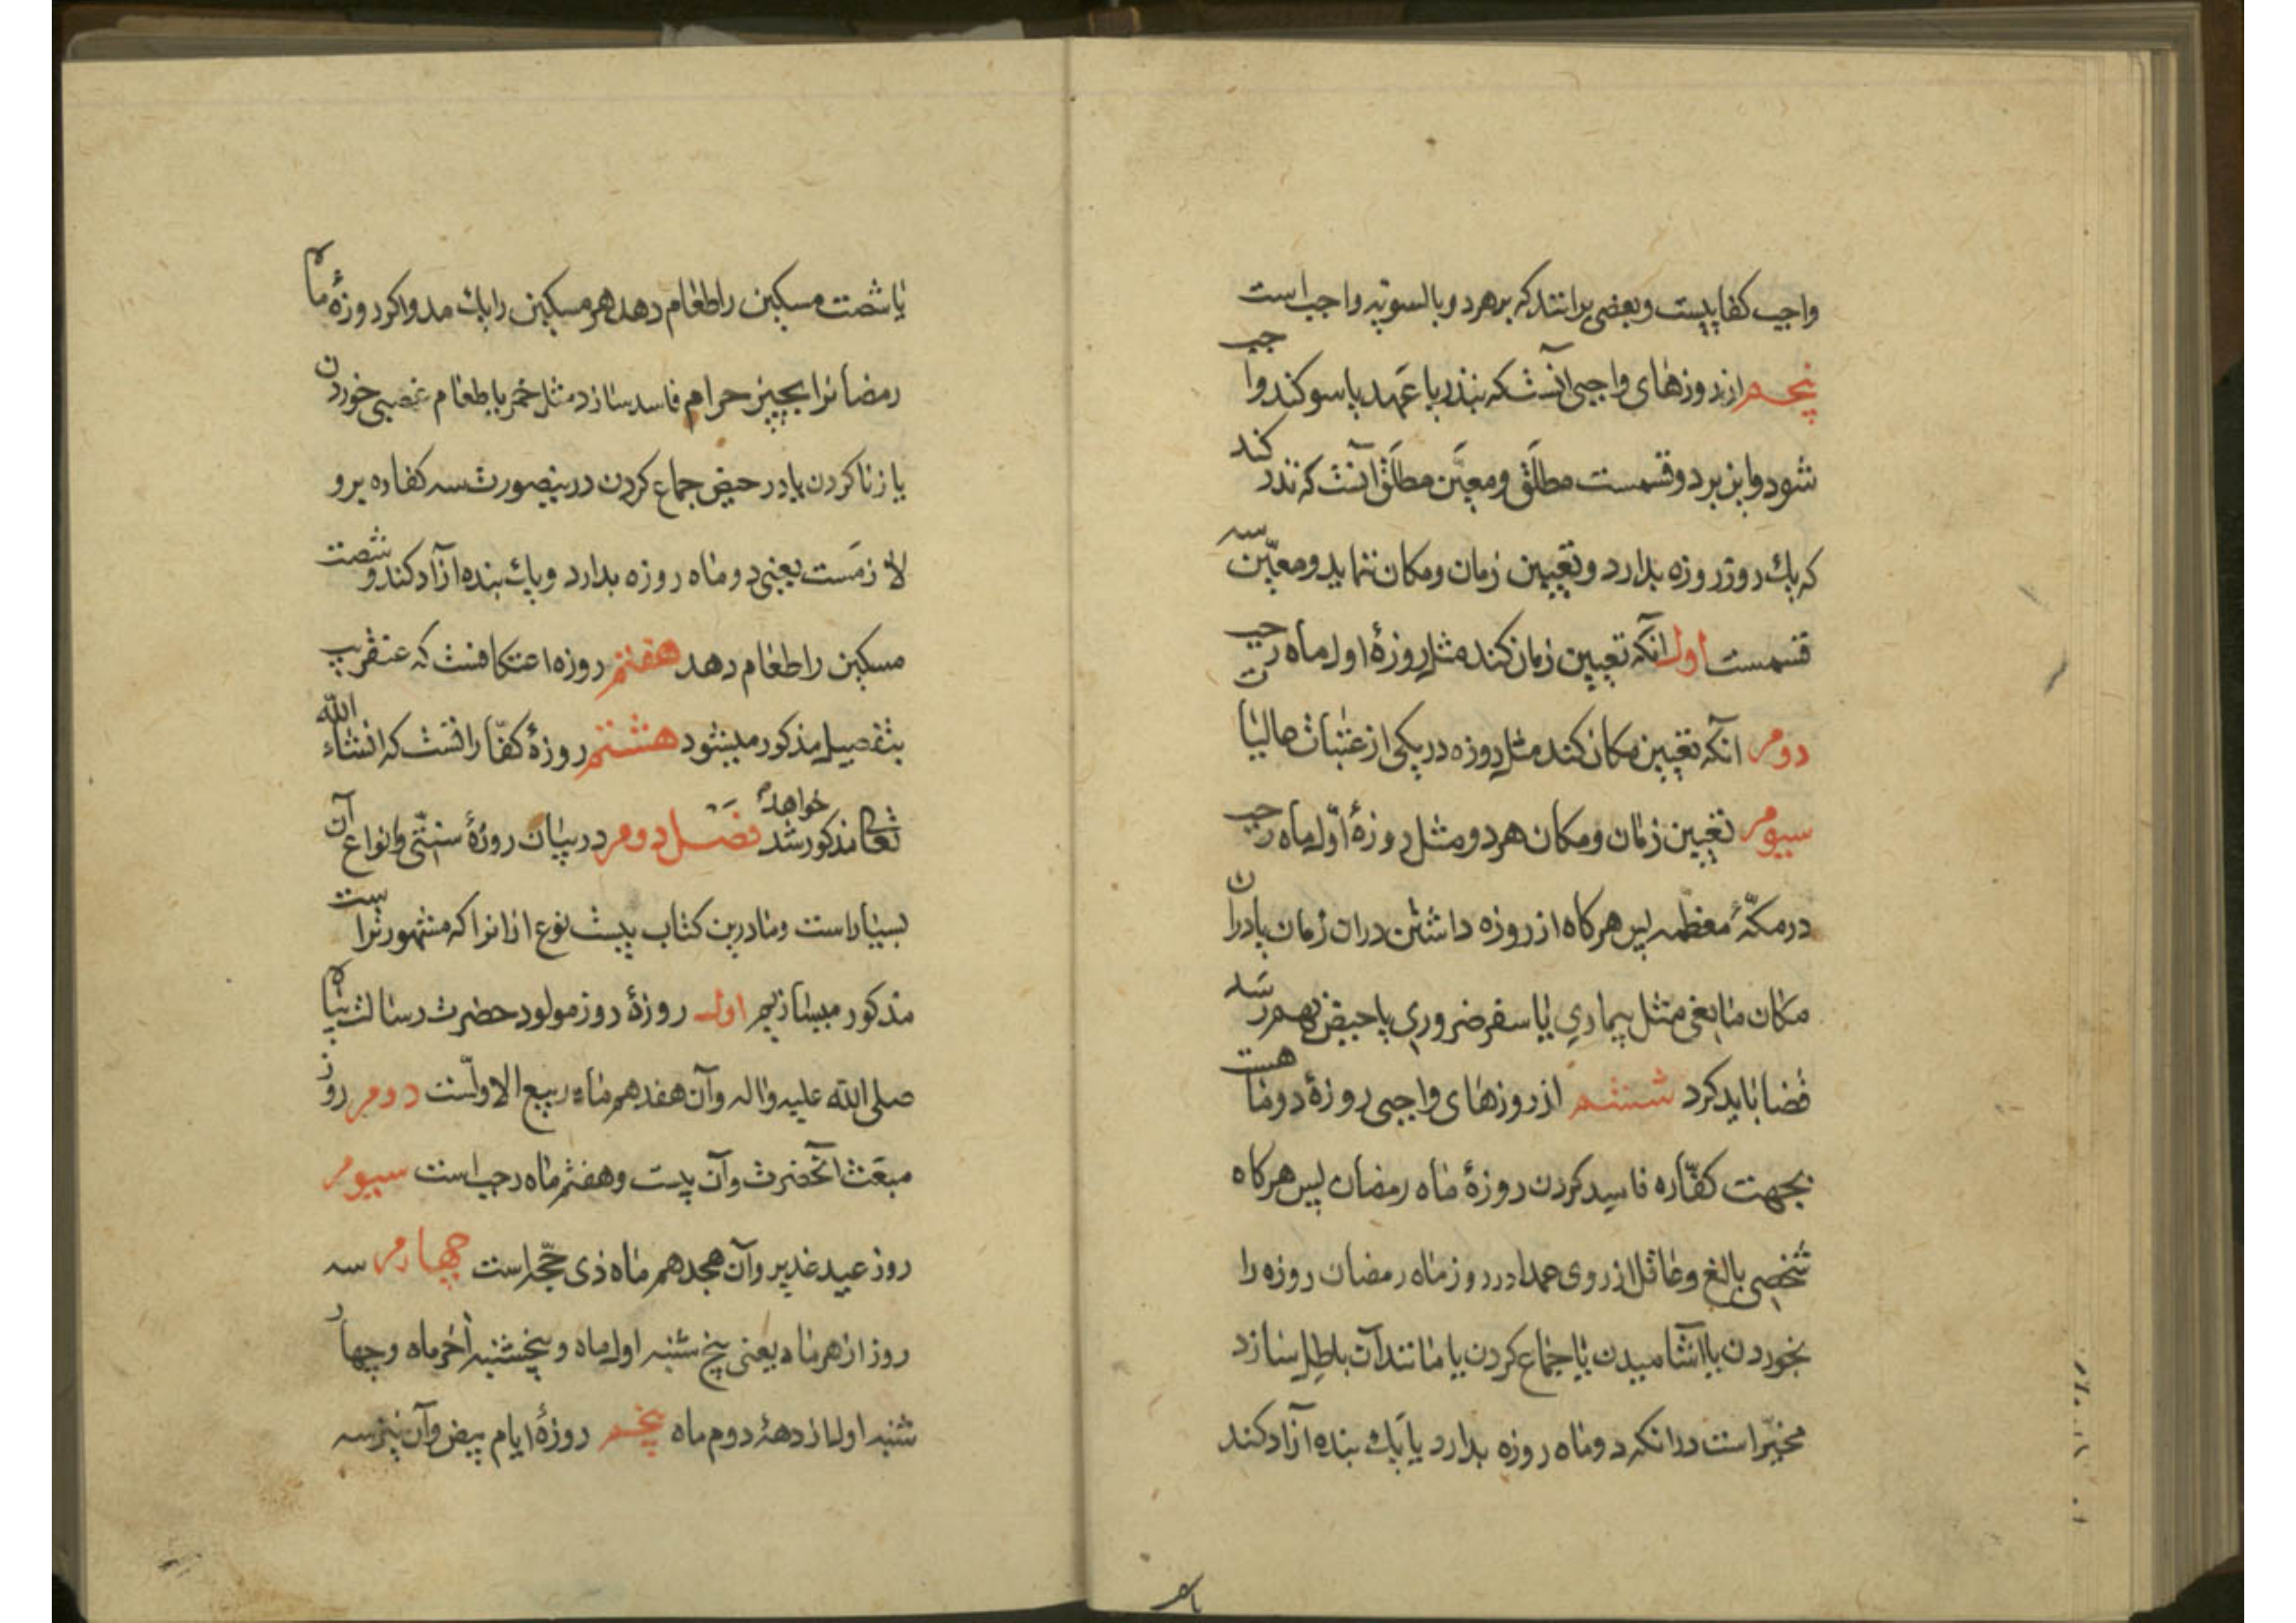 واجب کفاییست و بعضی برانند که برهر دو بالسویه واجب است
پنجم از روزهای واجبی آنست که بنذر یا عهد یا سوکند واجب
شود و این بر دو قسمست مطلق و معین مطلق آنست که نذر کند
که یک روز روزه بدارد و تعیین زمان و مکان ننماید و معین سه
قسمست اول آنکه تعیین زمان کند مثل روزهٔ اول ماه رجب
دوم آنکه تعیین مکان کند مثل روزه در یکی از عتبات عالیات
سیوم تعیین زمان و مکان هر دو مثل روزهٔ اول ماه رجب
در مکهٔ معظمه پس هرکاه از روزه داشتن دران زمان یا دران
مکان مانعی مثل بیماری یا سفر ضروری یا حیض بهم رسد
قضا باید کرد ششم از روزهای واجبی روزهٔ دو ماهست
بجهت کفّاره فاسد کردن روزهٔ ماه رمضان پس هرکاه
شخصی بالغ و عاقل از روی عمدا در روز ماه رمضان روزه را
بخوردن یا آشامیدن یا جماع کردن یا مانند آن باطل سازد
مخیّر است در آنکه دو ماه روزه بدارد یا یک بنده آزاد کند
یا شصت
یا شصت مسکین را طعام دهد هر مسکین را یک مد و اکر روزهٔ ماه
رمضانرا بچیز حرام فاسد سازد مثل خمر یا طعام غصبی خوردن
یا زنا کردن یا در حیض جماع کردن درینصورت سه کفاره برو
لازمست یعنی دو ماه روزه بدارد و یک بنده آزاد کند و شصت
مسکین را طعام دهد هفتم روزه اعتکافست که عنقریب
بتفصیل مذکور میشود هشتم روزهٔ کفّاراتست که انشاء الله
تعالی مذکور خواهد شد فصل دوم در بیان روزهٔ سنّتی و انواع آن
بسیار است و ما درین کتاب بیست نوع از انرا که مشهورتراست
مذکور میسازیم اول روزهٔ روز مولود حضرت رسالت پناه
صلی الله علیه واله و آن هفدهم ماه ربیع الاولست دوم روز
مبعث آنحضرت و آن بیست و هفتم ماه رجب است سیوم
روز عید غدیر و آن هجدهم ماه ذی حجّه است چهارم سه
روز از هر ماه یعنی پنج شنبه اول ماه و پنجشنبه آخر ماه و چهار
شنبه اول از دههٔ دوم ماه پنجم روزهٔ ایام بیض و آن نیز سه